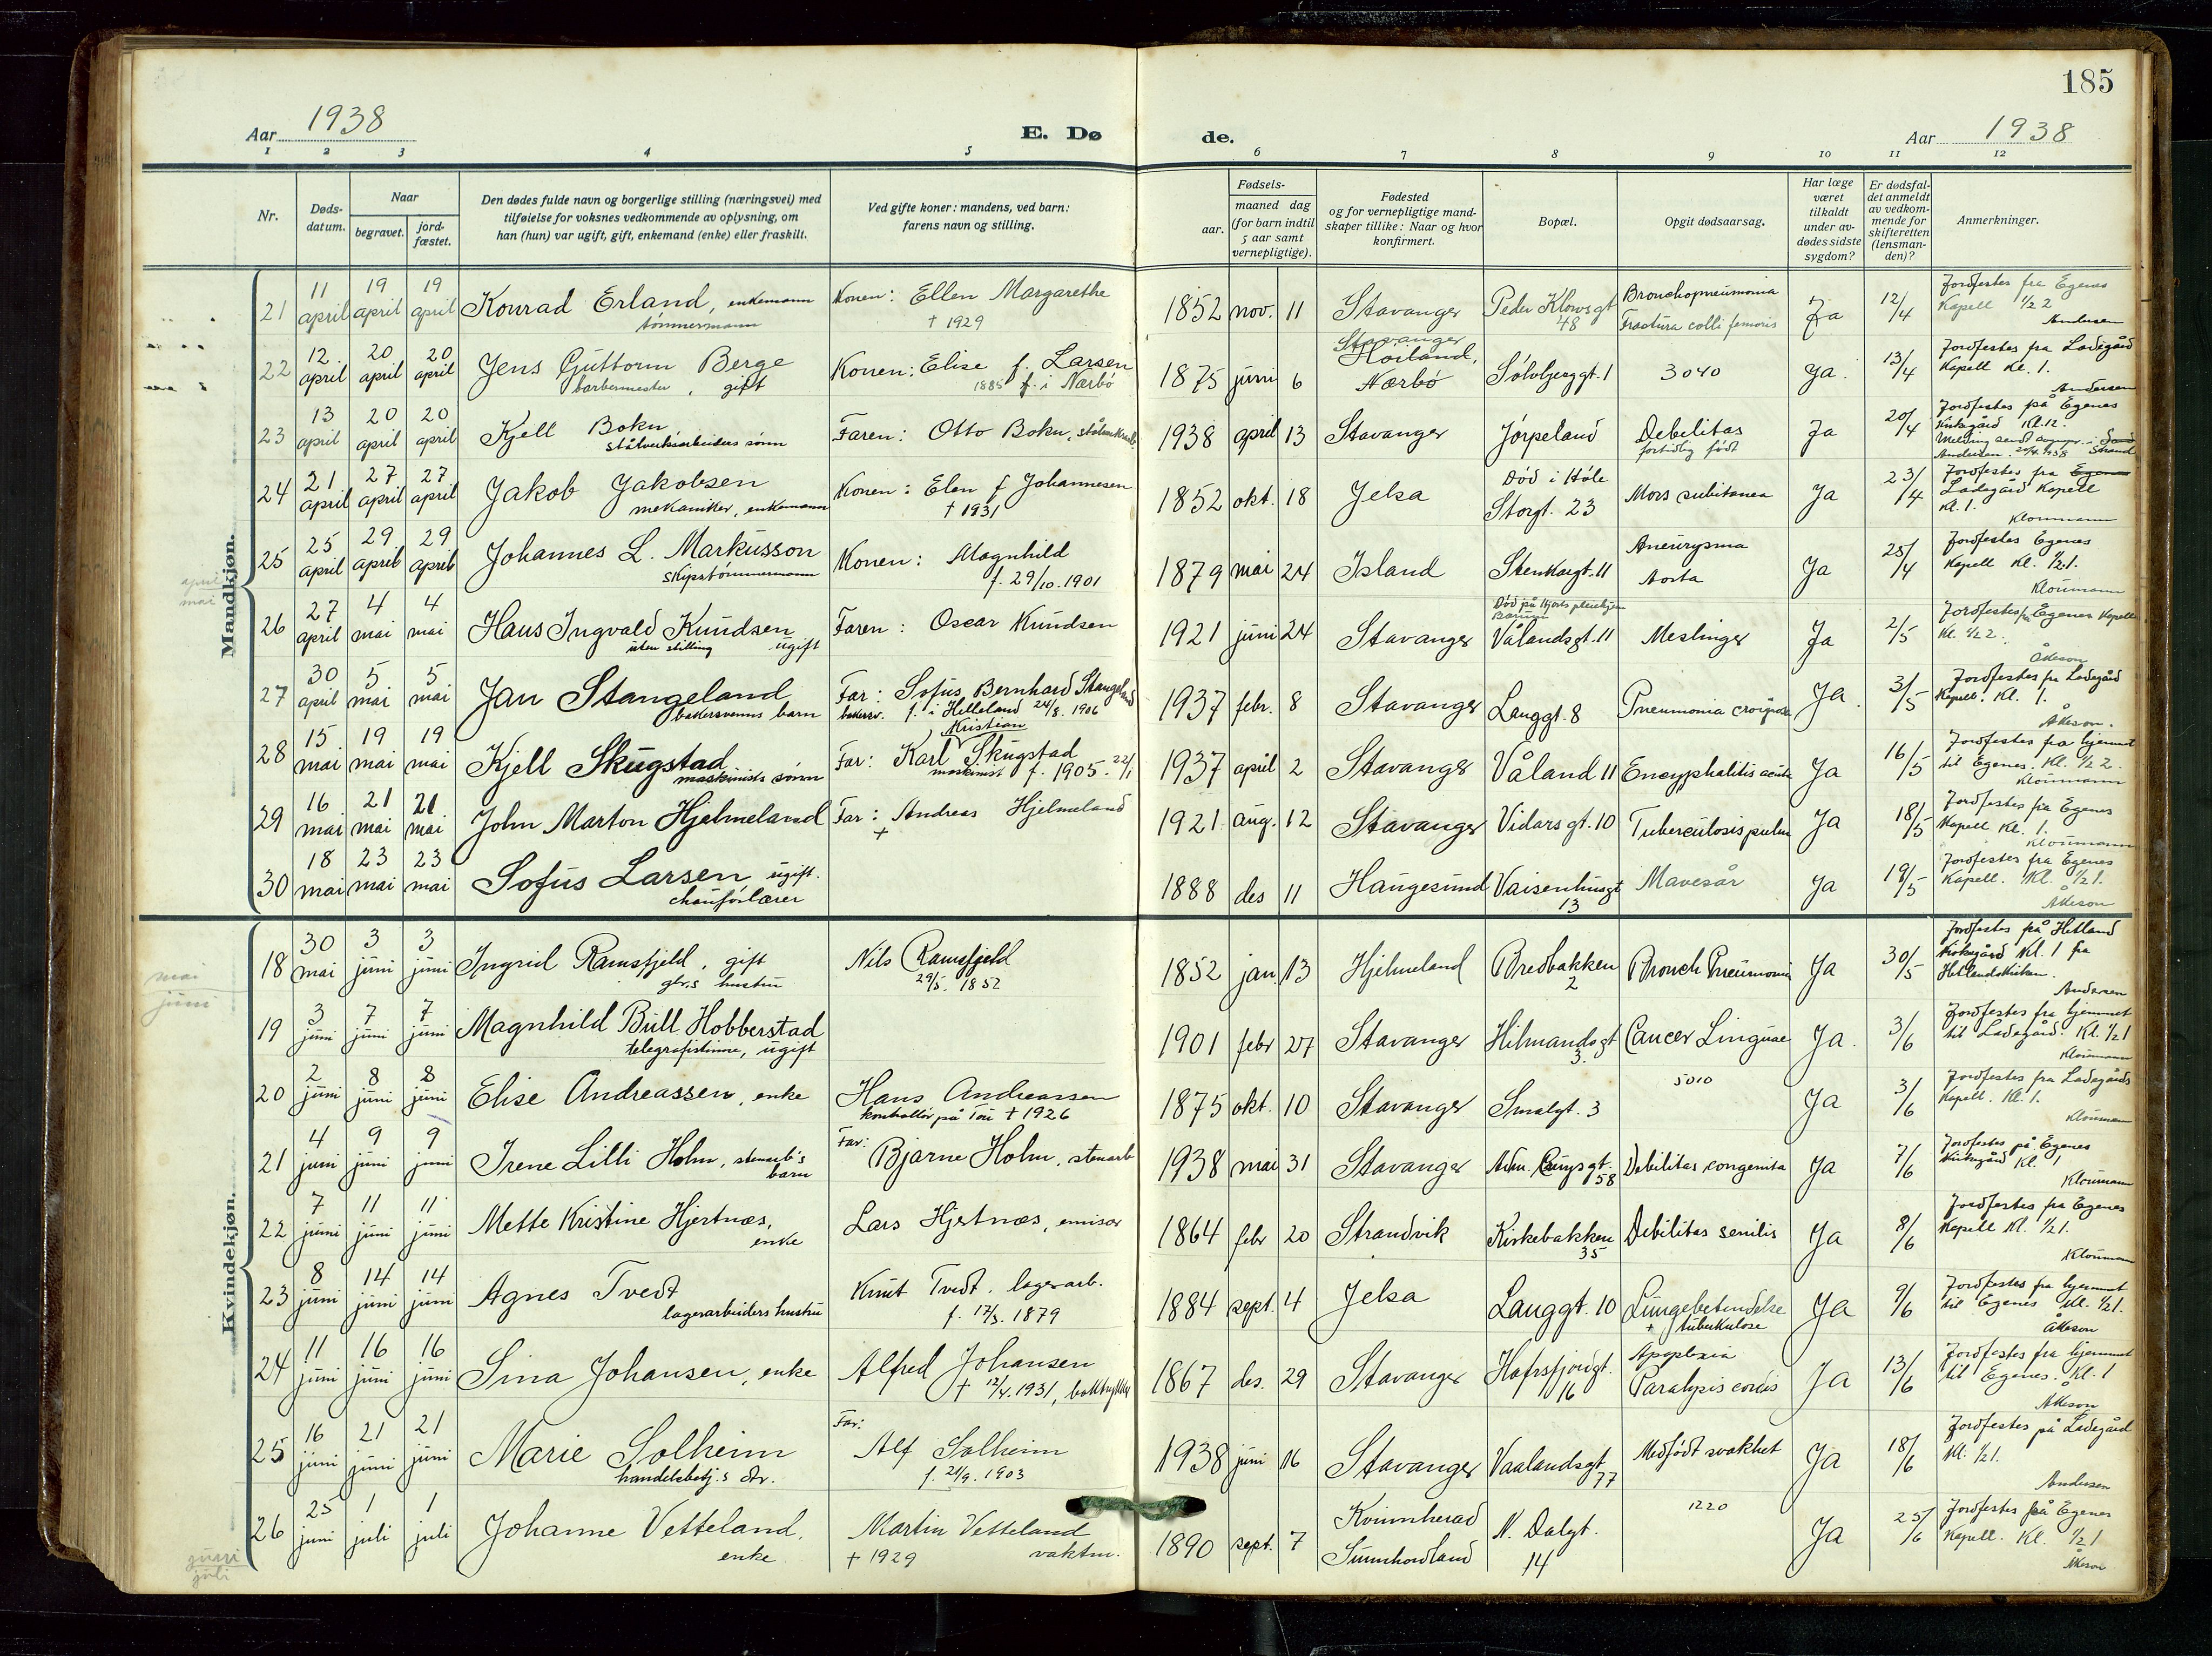 185
Aar 1938
E. Dø
de.
Aar 1938
1 2 3 4 5 6 7 8 9 10 11 12
Nr.
Døds-
datum.
Naar
begravet.
jord-
fæstet.
Den dødes fulde navn og borgerlige stilling (næringsvei) med
tilføielse for voksnes vedkommende av oplysning, om
han (hun) var ugift, gift, enkemand (enke) eller fraskilt.
Ved gifte koner: mandens, ved barn:
farens navn og stilling.
Fødsels-
aar.
maaned dag
(for barn indtil
5 aar samt
vernepligtige).
Fødested
og for vernepligtige mand-
skaper tillike: Naar og hvor
konfirmert.
Bopæl.
Opgit dødsaarsag.
Har læge
været
tilkaldt
under av-
dødes sidste
sygdom?
Er dødsfal-
det anmeldt
av vedkom-
mende for
skifteretten
(lensman-
den)?
Anmerkninger.
Mandkjøn.
april
mai
21 11 april 19 april 19 april Konrad Erland, enkemann
tømmermann
Konen: Ellen Margarethe
† 1929
1852 nov. 11 Stavanger Peder Klowsgt
48
Bronchopneumonia
Fractura colli femoris
Ja 12/4 Jordfestes fra Egenes
Kapell 1/2 2
Andersen
22 12. april 20 april 20 april Jens Guttorm Berge
barbermester, gift
Konen: Elise f. Larsen
1885 f. i Nærbø
1875 juni 6 Stavanger
Høiland,
Nærbø
Sølvbjerggt. 1 3040 Ja. 13/4 Jordfestes fra Ladegård
Kapell Kl. 1.
Andersen
23 13 april 20 april 20 april Kjell Bokn
stålverksarbeiders sønn
Faren: Otto Bokn,
1938 april 13 Stavanger Jørpeland Debilitas
fortidlig født
Ja 20/4 Jordfestes på Egenes
Kirkegård Kl. 12.
Melding sendt
Strand
Andersen. 20/4. 1938
24 21 april 27 april 27 april Jakob Jakobsen
mekaniker, enkemann
Konen: Elen f Johannesen
† 1931
1852 okt. 18 Jelsa Død i Høle
Storgt. 23
Mors subitanea Ja 23/4 Jordfestes fra Egenes
Ladegård Kapell
Kl. 1.
Kloumann
25 25 april 29. april 29 april Johannes L. Markusson
skipstømmermann
Konen: Magnhild
f. 29/10. 1901
1879 mai 24 Island Stenkargt. 11 Aneurysma
Aorta
Ja 25/4 Jordfestes Egenes
Kapell Kl. 1/2 1.
Kloumann
26 27 april 4 mai 4 mai Hans Ingvald Knudsen
uten stilling ugift
Faren: Oscar Knudsen
1921 juni 24 Stavanger Død på Hjorts pleiehjem
Vålandsgt. 11
Meslinger Ja 2/5 Jordfestes fra Egenes Kapell
Kl. 1/2 2.
Åkeson
27 30 april 5 mai 5 mai Jan Stangeland
bakersvenns barn
Far: Sofus Bernhard Stangeland
bakersv. f. i Helleland 24/8. 1906
1937 febr. 8 Stavanger Langgt. 8 Pneumonia Ja. 3/5 Jordfestes fra Ladegård
Kapell. Kl. 1.
Åkeson.
28 15. mai 19 mai 19 mai Kjell Skugstad
maskinists sønn
Kristian
Far: Karl Skugstad
maskinist f. 1905. 22/1
1937 april 2 Stavanger Våland 11 Encyphalitis acuta Ja 16/5 Jordfestes fra hjemmet
til Egenes. Kl. 1/2 2.
Kloumann
29 16 mai 21 mai 21 mai John Marton Hjelmeland Far: Andreas Hjelmeland
†
1921 aug. 12 Stavanger Vidarsgt. 10 Tuberculosis pulm Ja 18/5 Jordfestes fra Egenes
Kapell Kl. 1.
Kloumann
30 18 mai 23 mai 23 mai Sofus Larsen ugift.
chaufførlærer
1888 des 11 Haugesund Vaisenhusgt
13
Mavesår Ja 19/5 Jordfestes fra Egenes
Kapell. Kl. 1/2 1.
Åkeson
Kvindekjøn.
mai
juni
18 30 mai 3 juni 3 juni Ingrid Ramsfjeld, gift
gbr.s hustru
Nils Ramsfjeld
29/5. 1852
1852 jan. 13 Hjelmeland Bredbakken
2
Bronch Pneumoni Ja 30/5 Jordfestes på Hetland
Kirkegård Kl. 1 fra
Hetlandskirken.
Andersen
19 3 juni 7 juni 7 juni Magnhild Bull Hobberstad
telegrafistinne, ugift
1901 febr 27 Stavanger Hilmandsgt
3.
Cancer Linguae Ja. 3/6 Jordfestes fra hjemmet
til Ladegård. Kl. 1/2 1
Kloumann
20 2 juni 8 juni 8 juni Elise Andreassen, enke Hans Andreassen
kontrollør på Tou † 1926
1875 okt. 10 Stavanger Smalgt. 3 5010 Ja 3/6 Jordfestes fra Ladegårds
Kapell. Kl. 1.
Kloumann
21 4 juni 9 juni 9 juni Irene Lilli Holm, stenarb's
barn
Far:
Bjarne Holm, stenarb
1938 mai 31 Stavanger Adm. Cruysgt.
58
Debilitas congenita Ja 7/6 Jordfestes på Egenes
Kirkegård Kl. 1
Kloumann
22 7 juni 11 juni 11 juni Mette Kristine Hjertnæs,
enke
Lars Hjertnæs, emisær
1864 febr 20 Strandvik Kirkebakken
35
Debilitas senilis Ja 8/6 Jordfestes fra Egenes
Kapell Kl. 1/2 1.
Kloumann
23 8 juni 14 juni 14 juni Agnes Tvedt
lagerarbeiders hustru
Knut Tvedt, lagerarb.
f. 17/3. 1879
1884 sept. 4 Jelsa Langgt. 10 Lungebetendelse
+ tuberkulose
Ja 9/6 Jordfestes fra hjemmet
til Egenes Kl. 1/2 1.
Åkeson
24 11 juni 16 juni 16 juni Sina Johansen, enke Alfred Johansen
† 12/4. 1931, boktrykker
1867 des. 29 Stavanger Hafrsfjordgt.
16
Apoplexia
Paralysis cordis
Ja 13/6 Jordfestes fra hjemmet
til Egenes. Kl. 1
Åkeson
25 16 juni 21 juni 21 juni Marie Solheim
handelsbetj.s dtr.
Far:
Alf Solheim
f. 21/9. 1903
1938 juni 16 Stavanger Vaalandsgt
77
Medfødt svakhet Ja 18/6 Jordfestes på Ladegård
Kl. 1/2 1.
Andersen
juni
juli
26 25 juni 1 juli 1 juli Johanne Vetteland,
enke
Martin Vetteland
† 1929 vaktm.
1890 sept. 7 Kvinnherad
Sunnhordland
N. Dalgt.
14
1220 Ja 25/6 Jordfestes på Egenes
Kapell. Kl. 1/2 1
Åkeson